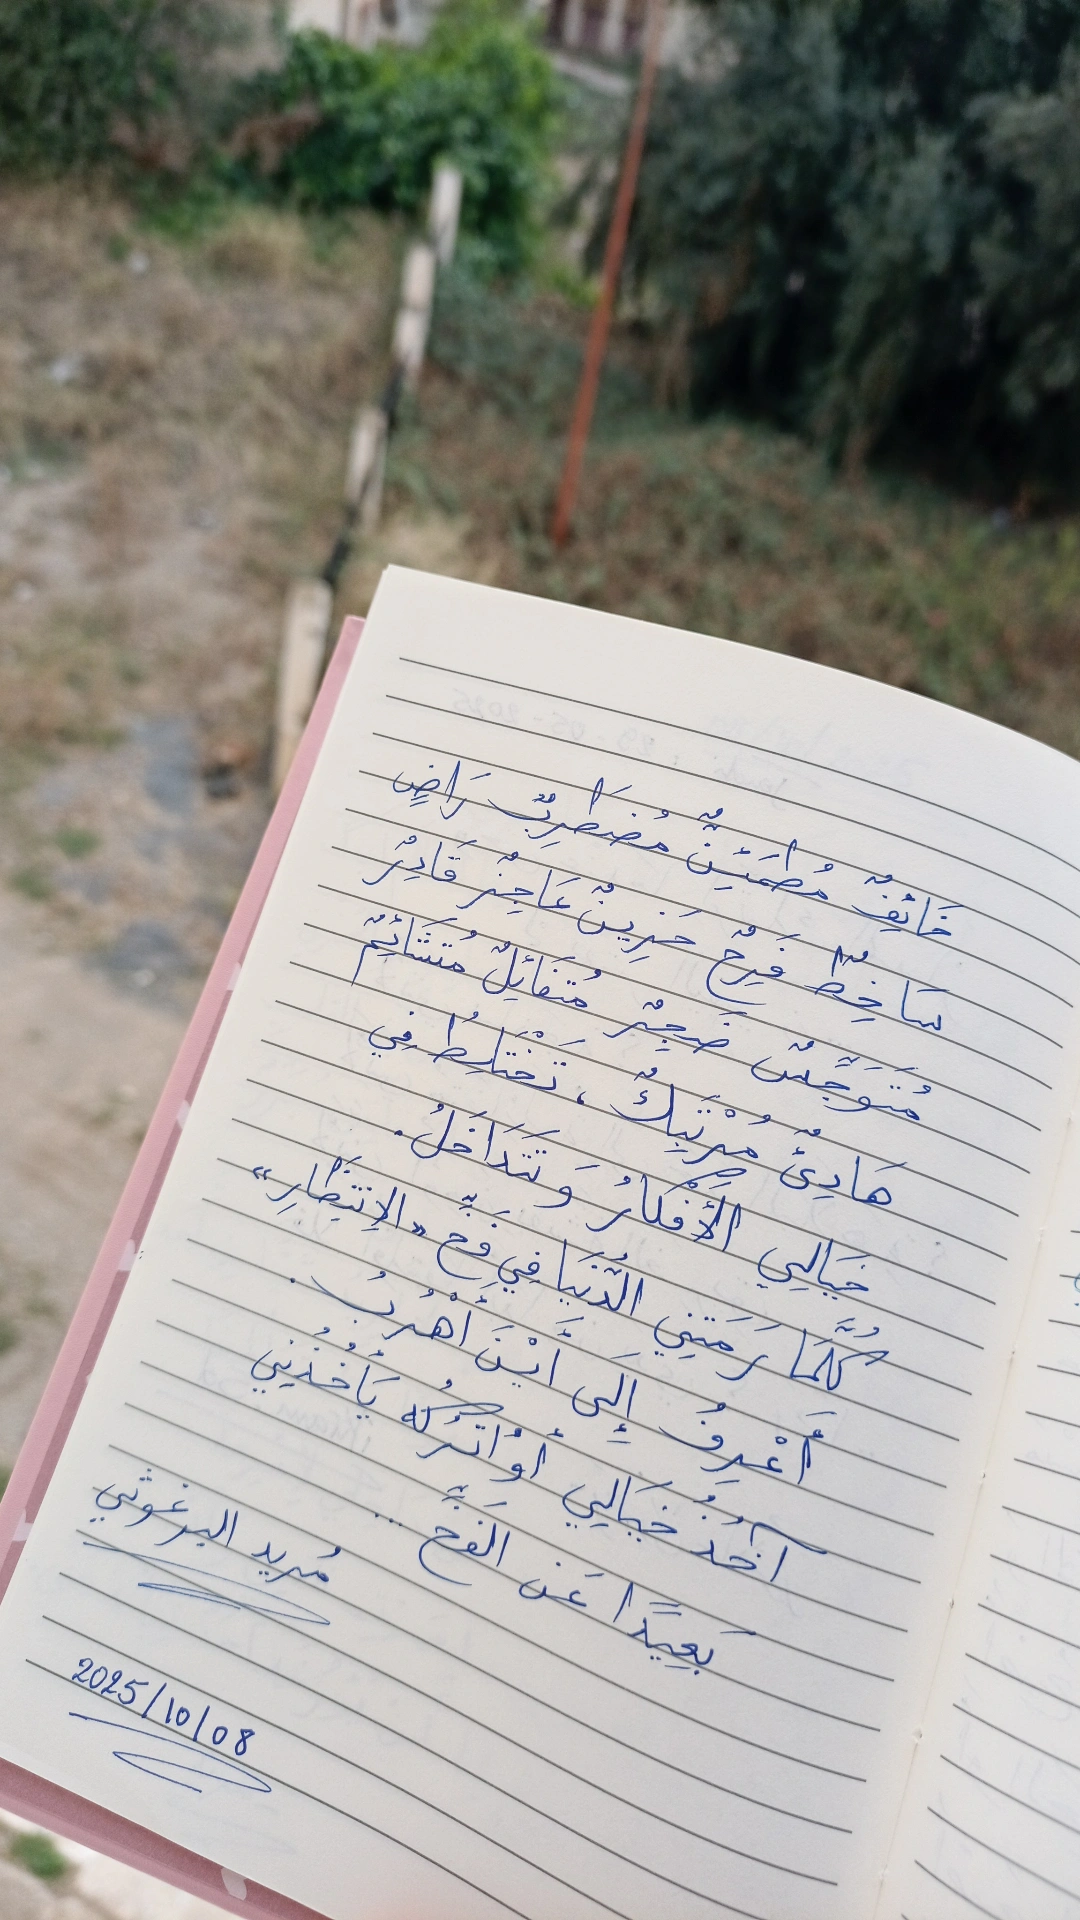 خَائِفٌ مُطمَئِنٌّ مُضطَرِبٌ رَاضٍ
سَاخِطٌ فَرِحٌ حَزِينٌ عَاجِزٌ قَادِرٌ
مُتَوَجِّسٌ ضَجِرٌ مُتَفَائِلٌ مُتَشَائِمٌ
هَادِئٌ مُرْتَبِكٌ، تَخْتَلِطُ فِي
خَيَالِي الأَفْكَارُ وَ تَتَدَاخَلُ.
كُلَّمَا رَمَتنِي الدُّنيَا فِي فَخِّ «الاِنتِظَارِ»
أَعْرِفُ إِلَى أَيْنَ أَهْرُبُ.
آخُذُ خَيَالِي أَو أترُكُهُ يَأخُذُنِي
بَعِيدًا عَن الفَخِّ ...
مُريد البرغوثي
2025/10/08